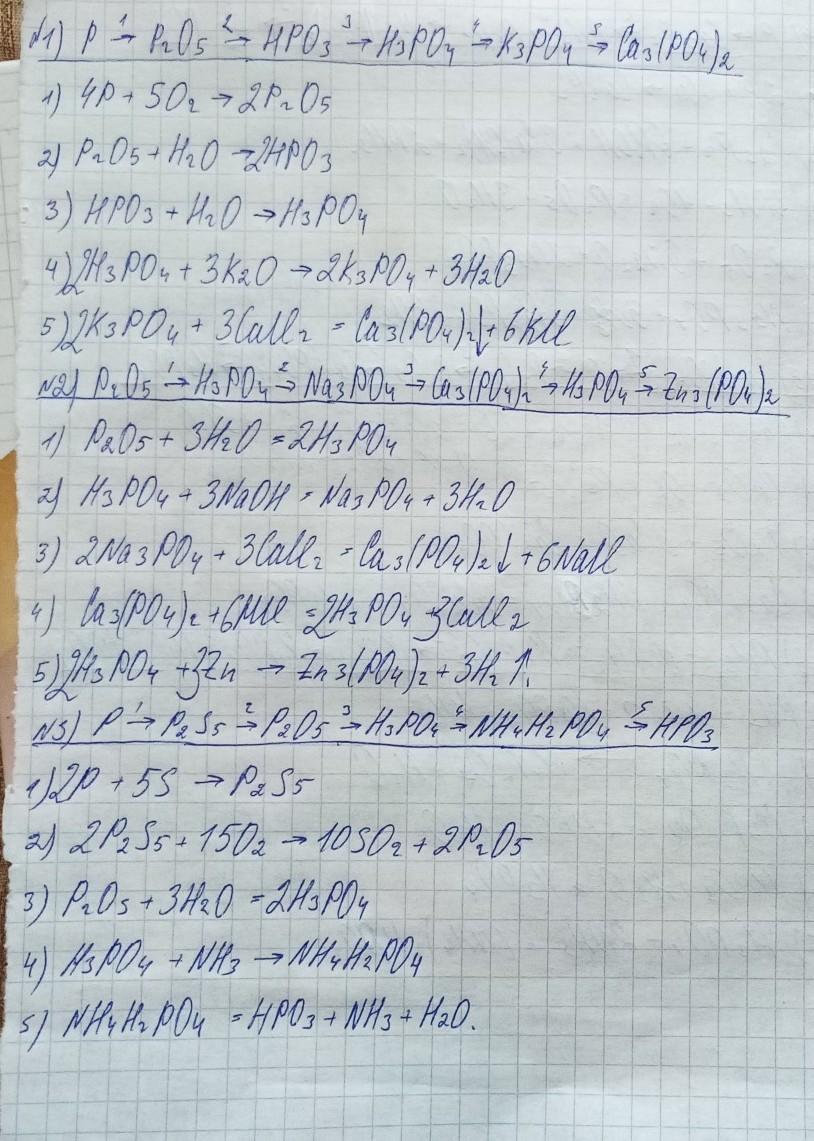 №1) P 1→ P₂O₅ 2→ HPO₃ 3→ H₃PO₄ 4→ K₃PO₄ 5→ Ca₃(PO₄)₂
1) 4P + 5O₂ → 2P₂O₅
2) P₂O₅ + H₂O → 2HPO₃
3) HPO₃ + H₂O → H₃PO₄
4) 2H₃PO₄ + 3K₂O → 2K₃PO₄ + 3H₂O
5) 2K₃PO₄ + 3CaCl₂ = Ca₃(PO₄)₂↓ + 6KCl
№2) P₂O₅ 1→ H₃PO₄ 2→ Na₃PO₄ 3→ Ca₃(PO₄)₂ 4→ H₃PO₄ 5→ Zn₃(PO₄)₂
1) P₂O₅ + 3H₂O = 2H₃PO₄
2) H₃PO₄ + 3NaOH = Na₃PO₄ + 3H₂O
3) 2Na₃PO₄ + 3CaCl₂ = Ca₃(PO₄)₂↓ + 6NaCl
4) Ca₃(PO₄)₂ + 6HCl = 2H₃PO₄ + 3CaCl₂
5) 2H₃PO₄ + 3Zn → Zn₃(PO₄)₂ + 3H₂↑.
№3) P 1→ P₂S₅ 2→ P₂O₅ 3→ H₃PO₄ 4→ NH₄H₂PO₄ 5→ HPO₃
1) 2P + 5S → P₂S₅
2) 2P₂S₅ + 15O₂ → 10SO₂ + 2P₂O₅
3) P₂O₅ + 3H₂O = 2H₃PO₄
4) H₃PO₄ + NH₃ → NH₄H₂PO₄
5) NH₄H₂PO₄ = HPO₃ + NH₃ + H₂O.